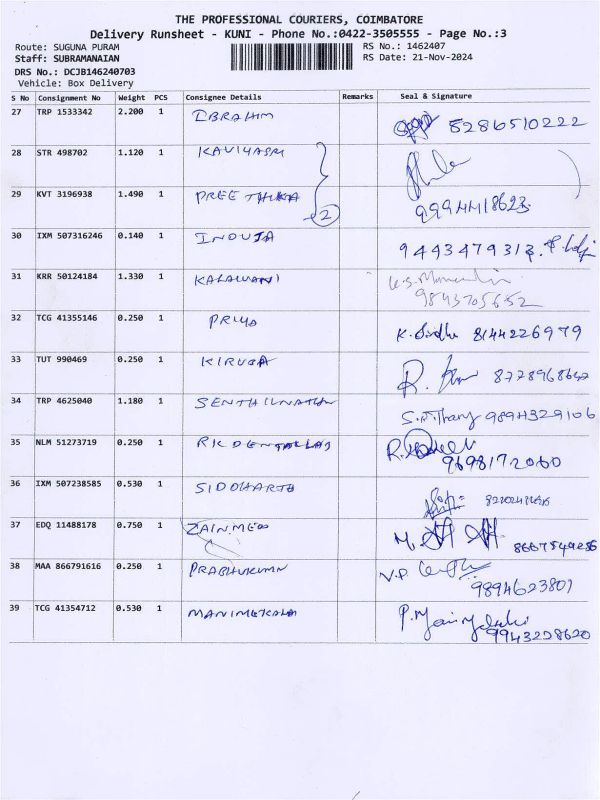 THE PROFESSIONAL COURIERS, COIMBATORE
Delivery Runsheet - KUNI - Phone No.:0422-3505555 - Page No.:3
Route: SUGUNA PURAM RS No.: 1462407
Staff: SUBRAMANAIAN RS Date: 21-Nov-2024
DRS No.: DCJB146240703
Vehicle: Box Delivery
S No Consignment No Weight PCS Consignee Details Remarks Seal & Signature
27 TRP 1533342 2.200 1 IBRAHIM 8286510222
28 STR 498702 1.120 1 KAVIYASRI
29 KVT 3196938 1.490 1 PREETHIKA 2 9994418623
30 IXM 507316246 0.140 1 INDUJA 9443479313
31 KRR 50124184 1.330 1 KALAIVANI 9843705652
32 TCG 41355146 0.250 1 PRIYA 8144226979
33 TUT 990469 0.250 1 KIRUBA
34 TRP 4625040 1.180 1 SENTHILNATHAN 9894329106
35 NLM 51273719 0.250 1 RK DENTAL LAB 9698172060
36 IXM 507238585 0.530 1 SIDDHARTH
37 EDQ 11488178 0.750 1 ZAINMED
38 MAA 866791616 0.250 1 PRABHUKUMR 9894623801
39 TCG 41354712 0.530 1 MANIMEKALA 9943228620